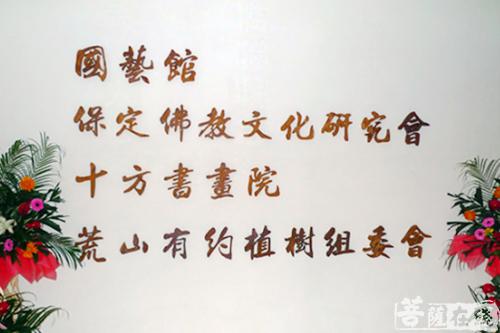 國藝館
保定佛教文化研究會
十方書畫院
荒山有約植樹組委會
菩薩在线